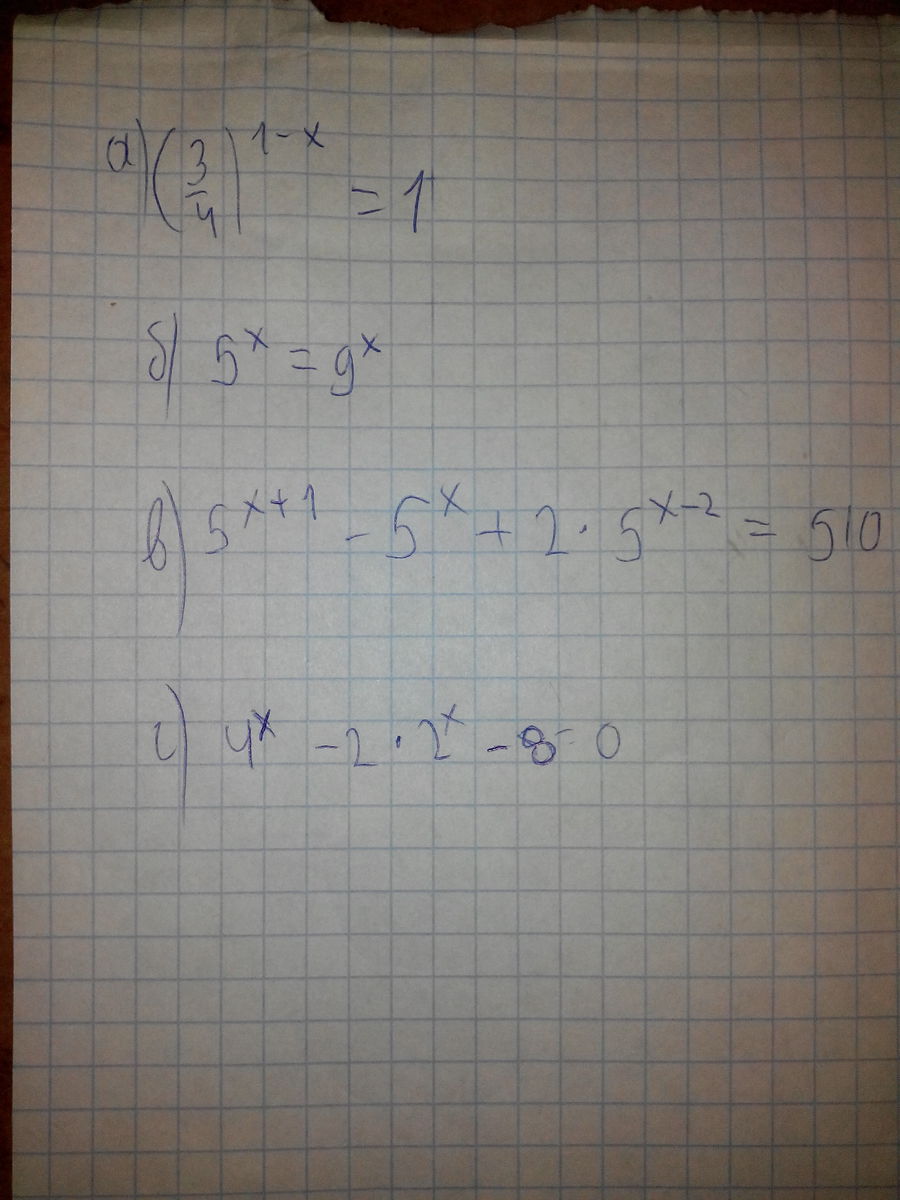 а) (3/4)^(1-x) = 1
б) 5^x = 9^x
в) 5^(x+1) - 5^x + 2 · 5^(x-2) = 510
г) 4^x - 2 · 2^x - 8 = 0